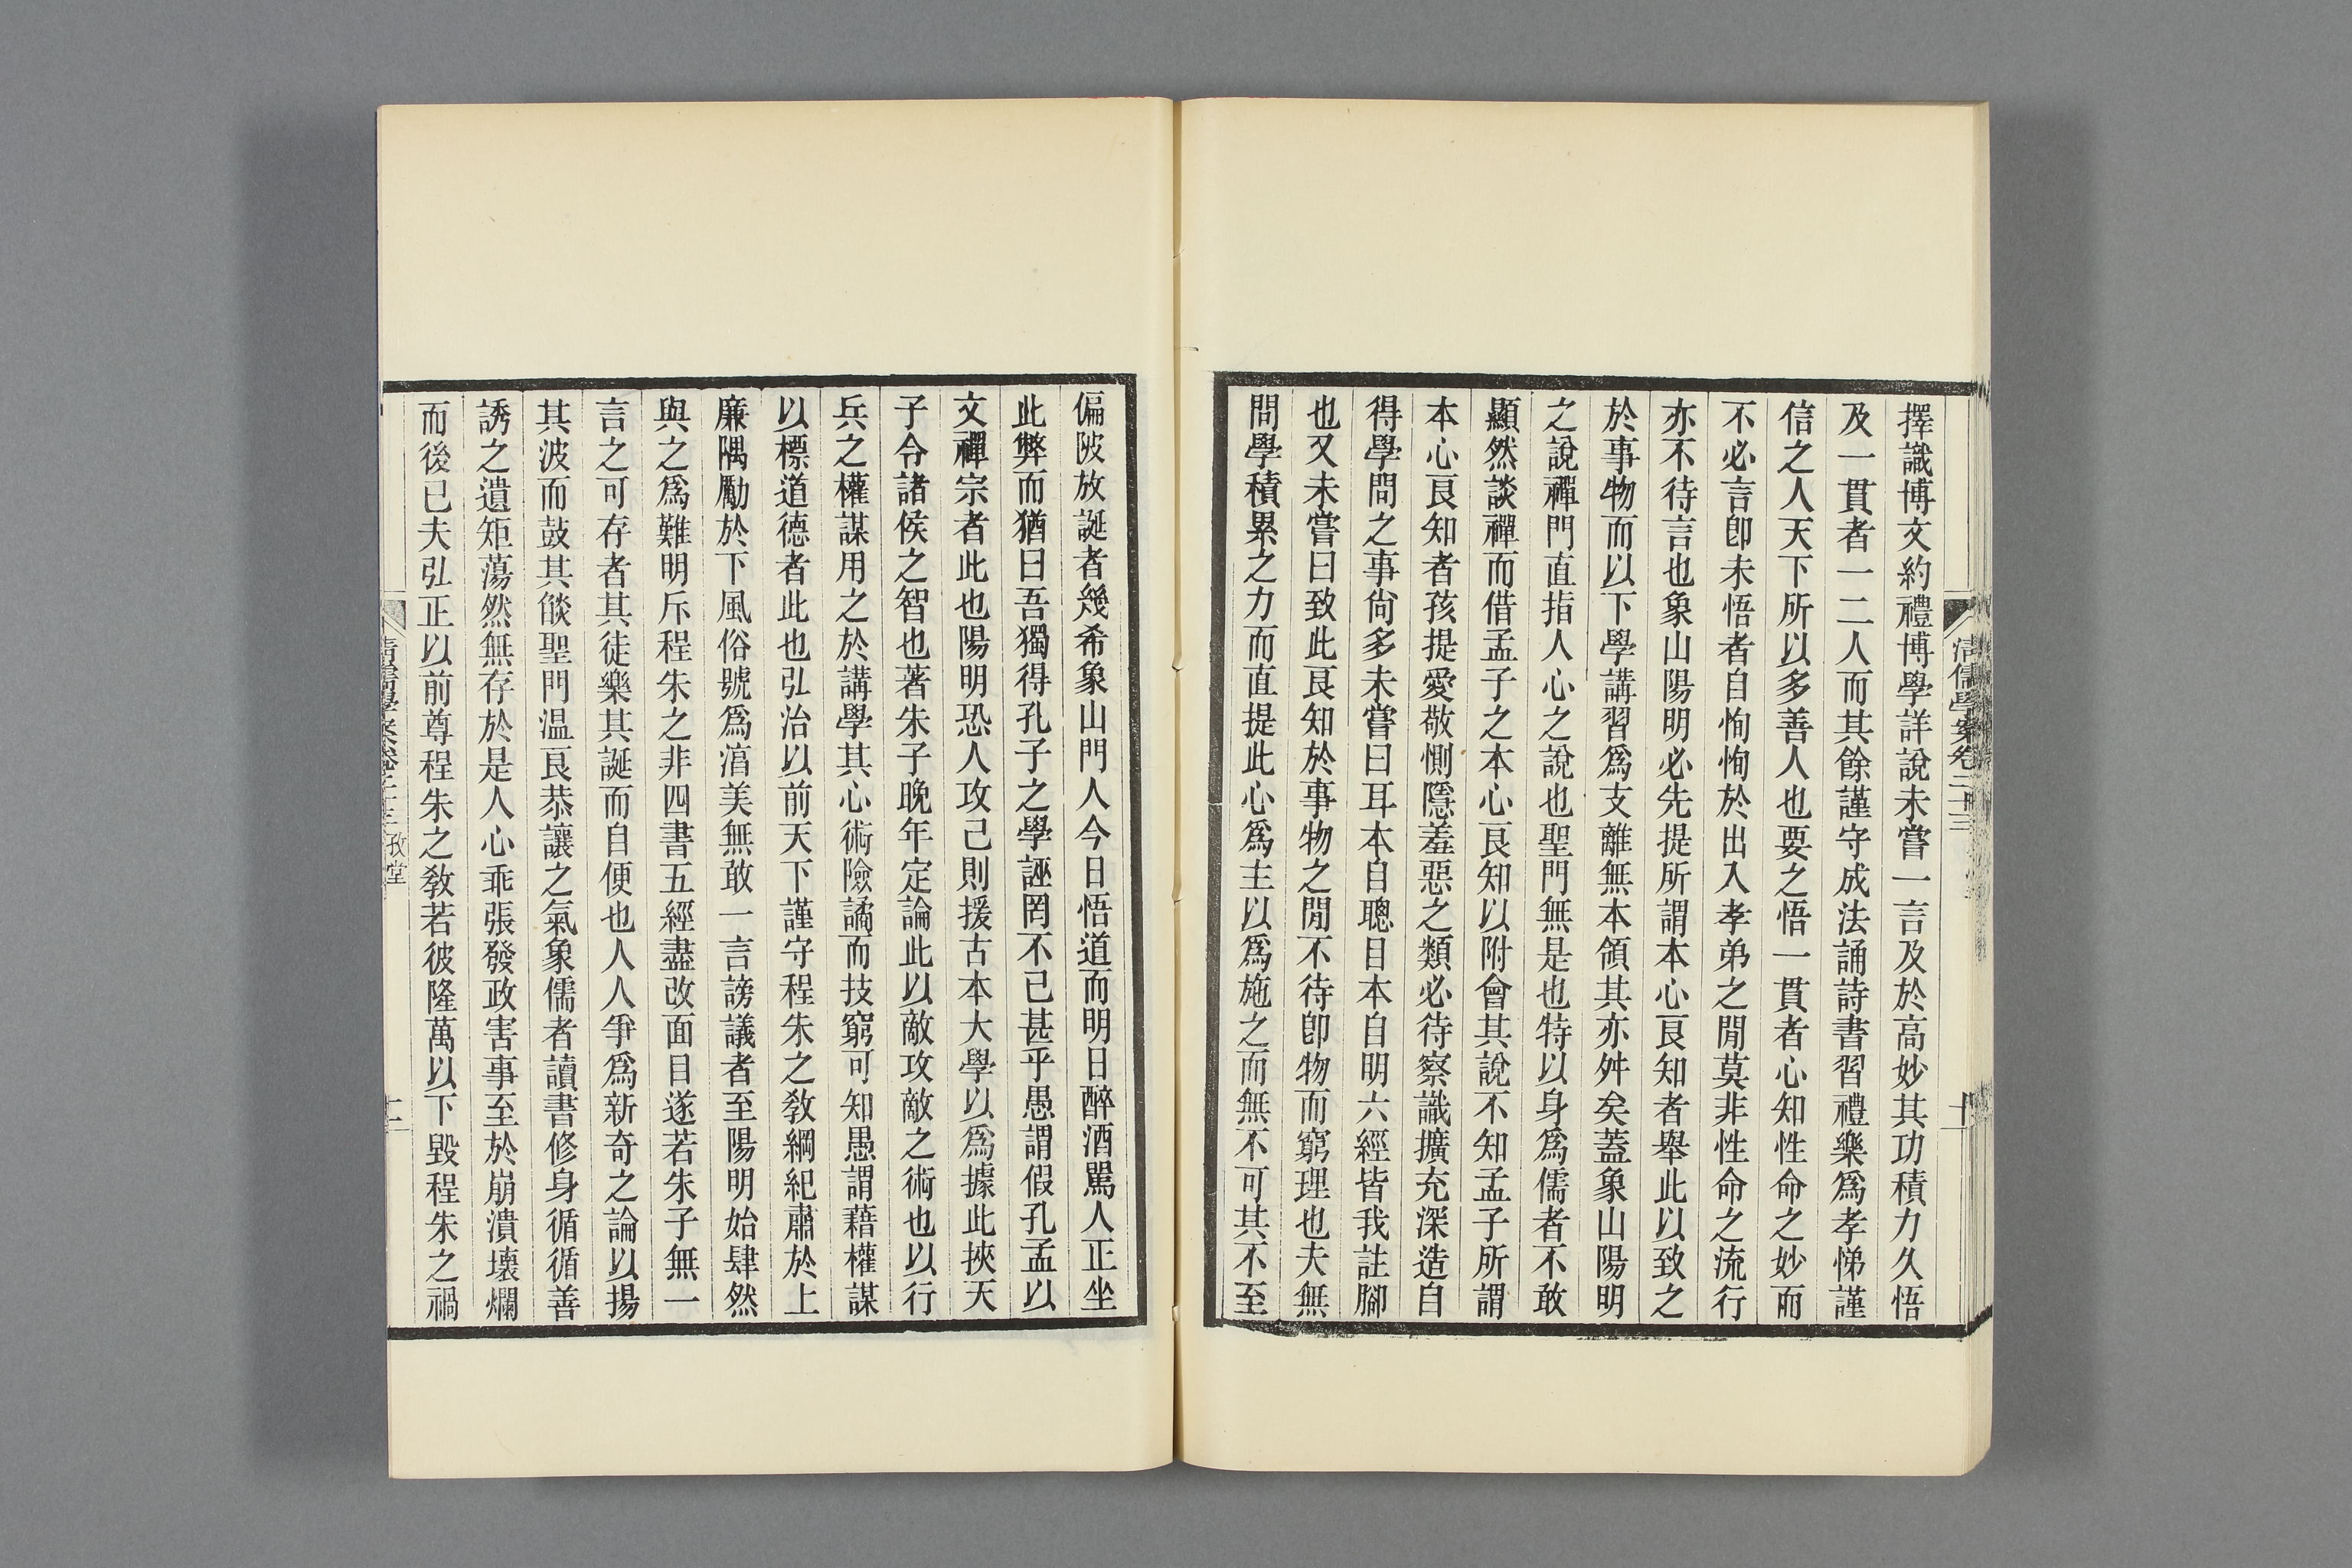 清儒學案卷二十三
十
擇識博文約禮博學詳說未嘗一言及於高妙其功積力久悟
及一貫者一二人而其餘謹守成法誦詩書習禮樂爲孝悌謹
信之人天下所以多善人也要之悟一貫者心知性命之妙而
不必言卽未悟者自恂恂於出入孝弟之閒莫非性命之流行
亦不待言也象山陽明必先提所謂本心良知者舉此以致之
於事物而以下學講習爲支離無本領其亦舛矣蓋象山陽明
之說禪門直指人心之說也聖門無是也特以身爲儒者不敢
顯然談禪而借孟子之本心良知以附會其說不知孟子所謂
本心良知者孩提愛敬惻隱羞惡之類必待察識擴充深造自
得學問之事尙多未嘗曰耳本自聰目本自明六經皆我註腳
也又未嘗曰致此良知於事物之閒不待卽物而窮理也夫無
問學積累之力而直提此心爲主以爲施之而無不可其不至
偏陂放誕者幾希象山門人今日悟道而明日醉酒罵人正坐
此弊而猶曰吾獨得孔子之學誣罔不已甚乎愚謂假孔孟以
文禪宗者此也陽明恐人攻己則援古本大學以爲據此挾天
子令諸侯之智也著朱子晚年定論此以敵攻敵之術也以行
兵之權謀用之於講學其心術險譎而技窮可知愚謂藉權謀
以標道德者此也弘治以前天下謹守程朱之敎綱紀肅於上
廉隅勵於下風俗號爲湻美無敢一言謗議者至陽明始肆然
與之爲難明斥程朱之非四書五經盡改面目遂若朱子無一
言之可存者其徒樂其誕而自便也人人爭爲新奇之論以揚
其波而鼓其燄聖門温良恭讓之氣象儒者讀書修身循循善
誘之遺矩蕩然無存於是人心乖張發政害事至於崩潰壞爛
而後已夫弘正以前尊程朱之敎若彼隆萬以下毀程朱之禍
清儒學案卷二十三
十一